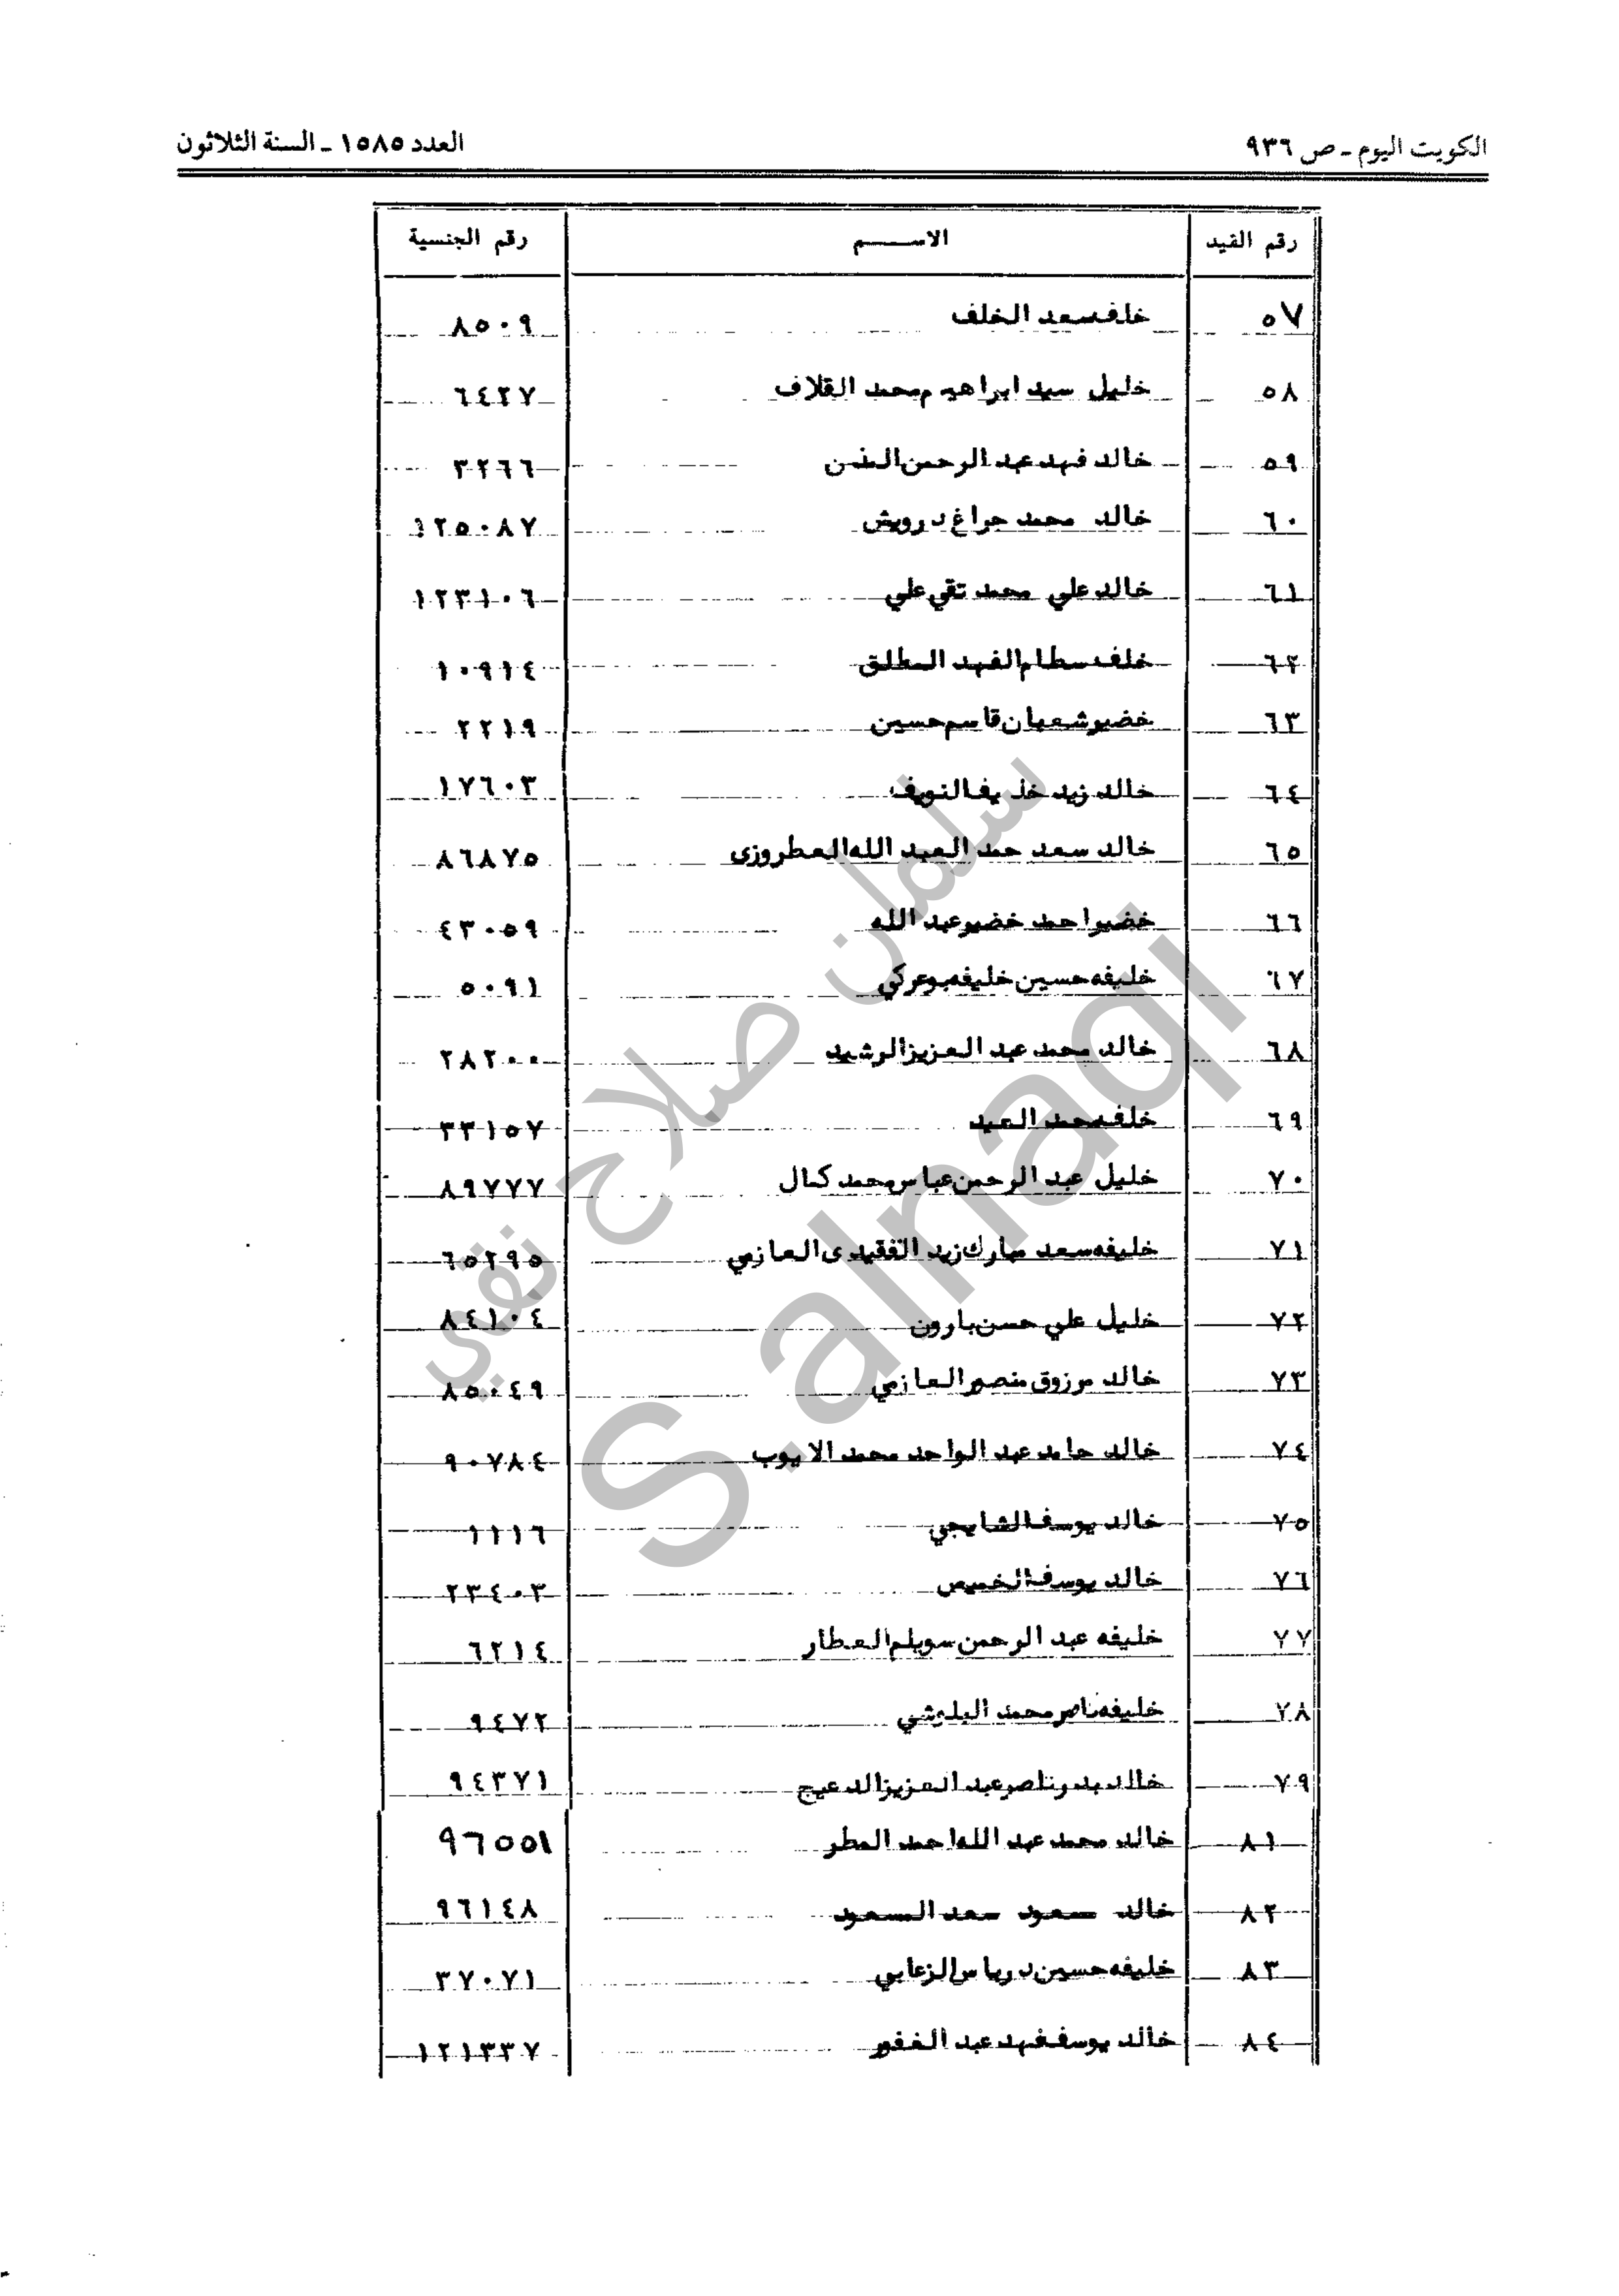 الكويت اليوم ـ ص ٩٣٦ العدد ١٥٨٥ ـ السنة الثلاثون
رقم القيد الاســـم رقم الجنسية
٥٧ خلف سعد الخلف ٨٥٠٩
٥٨ خليل سيد ابراهيم محمد القلاف ٦٤٢٧
٥٩ خالد فهد عبد الرحمن ٣٢٦٦
٦٠ خالد محمد جراغ درويش ١٢٥٠٨٧
٦١ خالد علي محمد تقي علي ١٢٣١٠٦
٦٢ خلف سطام الفهد المطلق ١٠٩١٤
٦٣ خضير شعبان قاسم حسين ٢٢١٩
٦٤ خالد زيد خليف النويف ١٧٦٠٣
٦٥ خالد سعد حمد العبد الله العطروزى ٨٦٨٧٥
٦٦ خضير احمد خضير عبد الله ٤٣٠٥٩
٦٧ خليفه حسين خليفه بوعركي ٥٠٩١
٦٨ خالد محمد عبد العزيز الرشيد ٢٨٢٠٠
٦٩ خلف حمد العيد ٣٣١٥٧
٧٠ خليل عبد الرحمن عباس محمد كمال ٨٩٧٧٧
٧١ خليفه سعد مبارك زيد الفقيدى العازمي ٦٥٢٩٥
٧٢ خليل علي حسن بارون ٨٤١٠٤
٧٣ خالد مرزوق منصور العازمي ٨٥٠٤٩
٧٤ خالد حامد عبد الواحد محمد الايوب ٩٠٧٨٤
٧٥ خالد يوسف الشايجي ١١١٦
٧٦ خالد يوسف الخميس ٢٣٤٠٣
٧٧ خليفه عبد الرحمن سويلم العطار ٦٢١٤
٧٨ خليفه ناصر محمد البليشي ٩٤٧٢
٧٩ خالد بدر ناصر عبد العزيز الدعيج ٩٤٣٧١
٨١ خالد محمد عبد الله احمد المطر ٩٦٥٥١
٨٢ خالد سعود سعد السعود ٩٦١٤٨
٨٣ خليفه حسين درياس الزعابي ٣٧٠٧١
٨٤ خالد يوسف فهد عبد الغفور ١٢١٣٣٧
سلمان صلاح نقي
S.alnaqi